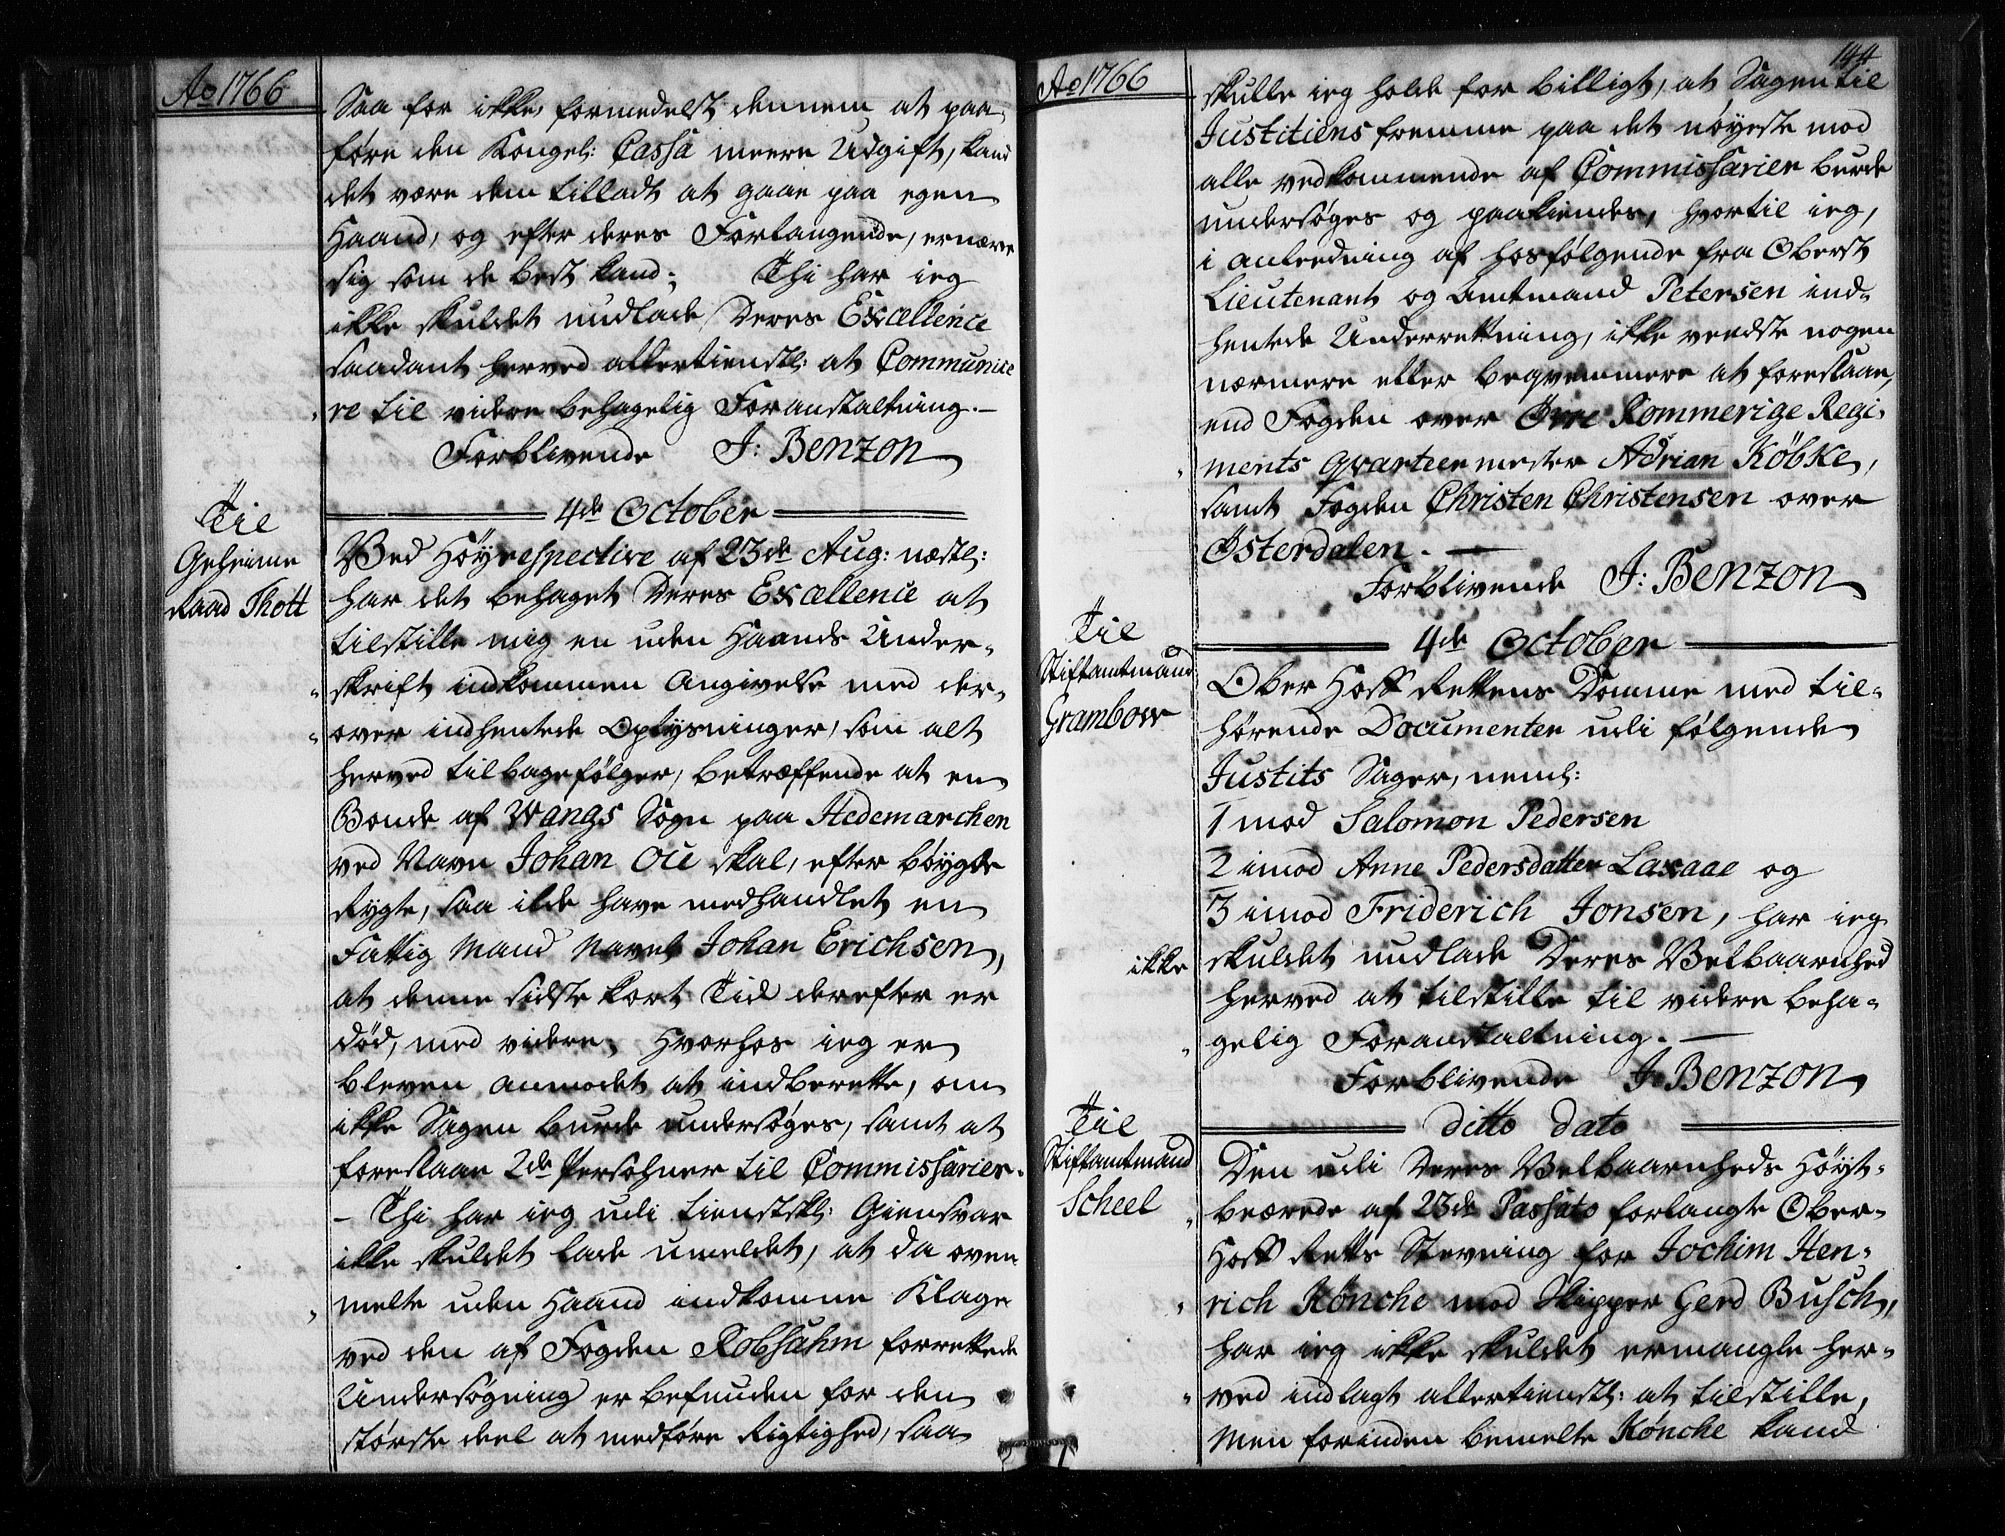 Ao 1766
Saa for ikke, formedelst dennem, at paa-
føre den Kongel: Cassa meere Udgift, kand
det være dem tilladt at gaae paa egen
Haand, og efter deres Forlangende, ernære
sig som de best kand; Thi har ieg
ikke skuldet undlade, Deres Excellence
saadant herved allertienstl: at Communice
re til videre behagelig Foranstaltning.-
Forblivende J: Benzon
Til
Geheime
Raad Thott
4de October
Med Høyrespective af 23de Aug: næstl:
har det behaget Deres Excellence at
tilstille mig en uden Haands Under-
skrift indkommen Angivelse med der-
over indhentede Oplysninger, som alt
herved tilbagefølger, betræffende at en
Bonde af Wangs Sogn paa Hedemarchen
ved Navn Johan Oie skal, efter bøygde
Rygte, saa ilde have medhandlet en
Fattig Mand Navnl Johan Erichsen,
at denne sidste kort Tid derefter er
død, med videre; Hvorhos ieg er
bleven anmodet at indberette, om
ikke Sagen burde undersøges, samt at
foreslaae 2de Persohner til Commissarier.
- Thi har ieg udi tienstskl: Giensvar
ikke skuldet lade umeldet, at da oven
melte uden Haand indkomne Klage
ved den af Fogden Robsahm forrettede
Undersøgning er befunden for den
største deel at medføre Rigtighed, saa
Ao 1766
144
skulle ieg holde for billigt, at Sagen til
Justitiens fremme paa det nøyeste mod
alle vedkommende af Commissarier burde
undersøges og paakiendes, hvortil ieg,
i anleedning af hosfølgende fra Oberst
Lieutenant og Amtmand Petersen ind-
hentede Underretning, ikke veedste nogen
nærmere eller beqvemmere at foreslaae,
end Fogden over Øvre Rommerige Regi-
ments qvarteermester Adrian Köbke,
samt Fogden Christen Christensen over
Østerdalen. -
Forblivende J: Benzon
Til
Stiftamtmand
Grambow
4de October
Ober Hoff Rettens Domme med til-
hørende Documenter udi følgende
Justits Sager, neml:
1 mod Salomon Pedersen
2 imod Anne Pedersdatter Laxaae og
3 imod Friderich Jonsen, har ieg
ikke
skuldet undlade Deres Velbaarnhed
herved at tilstille til videre beha-
gelig Foranstaltning. -
Forblivende J: Benzon
Til
Stiftamtmand
Scheel
ditto dato
Den udi Deres Velbaarnheds Høyst-
beærede af 23de Passato forlangte Ober-
Hoff Retts Stevning for Jochim Hen-
rich Könche mod Skipper Gerd Busch,
har ieg ikke skuldet ermangle her-
ved indlagt allertienstl: at tilstille,
Men forinden bemelte Könche kand